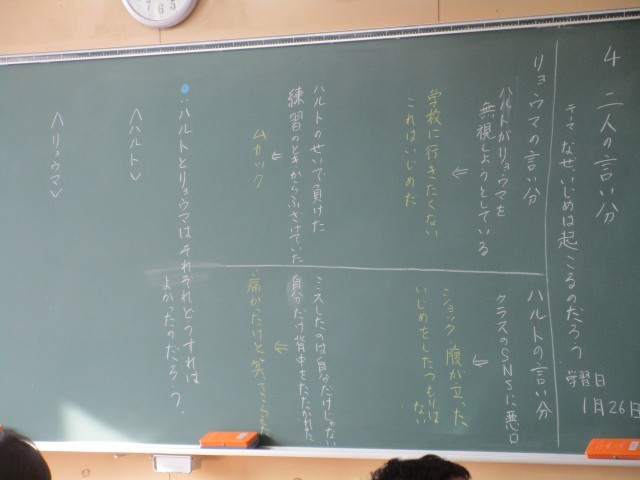 4 二人の言い分
テーマ なぜ、いじめは起こるのだろう
学習日
1月26日
リョウマの言い分
ハルトがリョウマを
無視しようとしている
←
学校に行きたくない
これはいじめだ
ハルトのせいで負けた
練習のときからふざけていた
←
ムカック
ハルトの言い分
クラスのSNSに悪口
←
ショック、腹が立った、
いじめをしたつもりは
ない
ミスしたのは自分だけじゃない
自分だけ背中をたたかれた
←
痛かったけど笑って
:ハルトとリョウマはそれぞれどうすれば
よかったのだろう?
<ハルト>
<リョウマ>